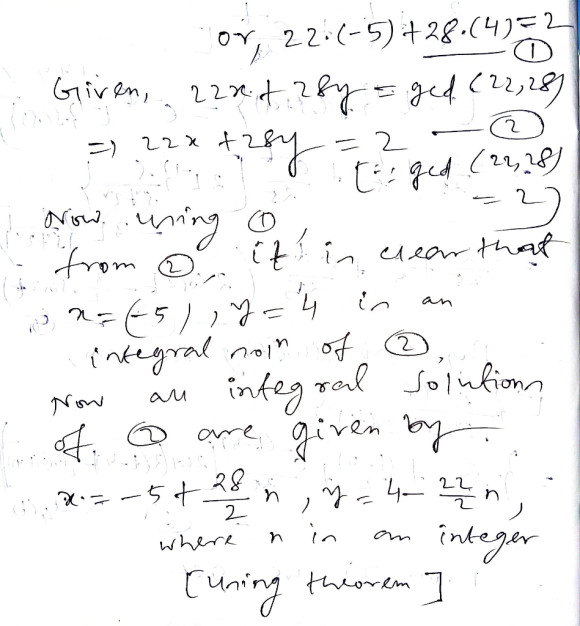 or, 22.(-5) + 28.(4) = 2
①
Given, 22x + 28y = gcd (22,28)
⇒ 22x + 28y = 2 — ②
[∵ gcd (22,28) = 2]
Now using ①,
from ② it is clear that
x = (-5), y = 4 is an
integral soln of ②,
Now all integral solutions
of ② are given by
x = -5 + 28/2 n, y = 4 - 22/2 n,
where n is an integer
[Using theorem]